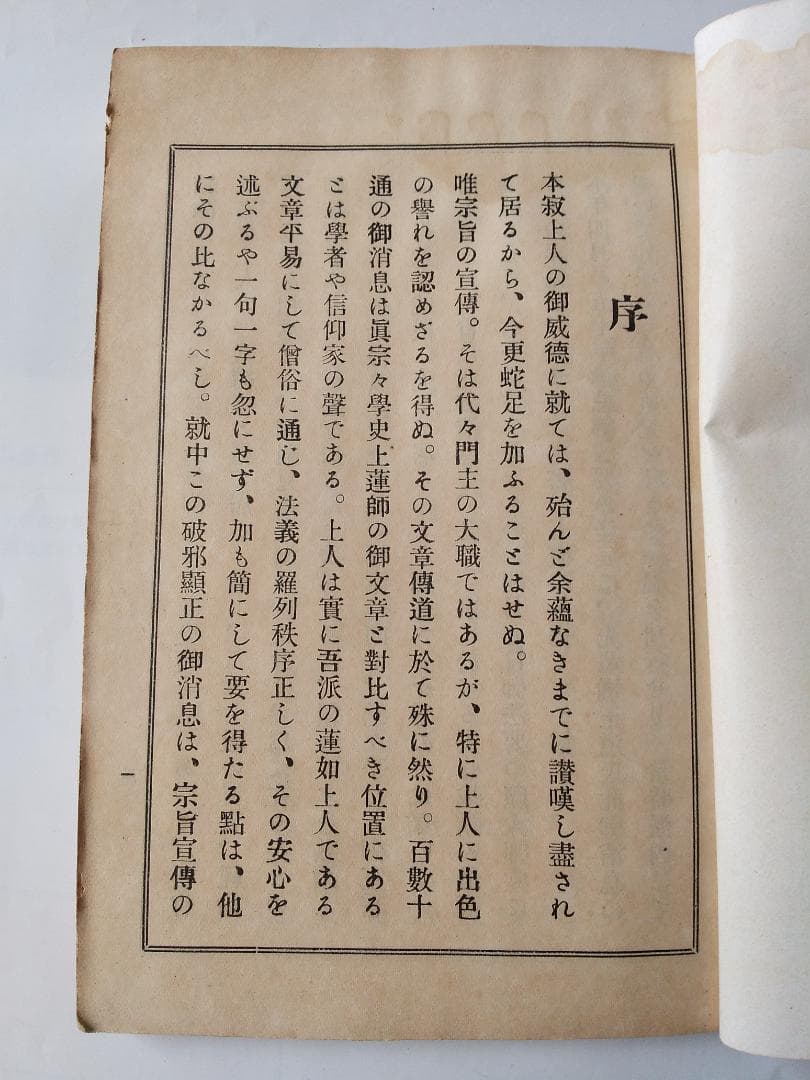 序
本寂上人の御威德に就ては、殆んど余蘊なきまでに讃嘆し盡され
て居るから、今更蛇足を加ふることはせぬ。
唯宗旨の宣傳。そは代々門主の大職ではあるが、特に上人に出色
の譽れを認めざるを得ぬ。その文章傳道に於て殊に然り。百數十
通の御消息は眞宗々學史上蓮師の御文章と對比すべき位置にある
とは學者や信仰家の聲である。上人は實に吾派の蓮如上人である
文章平易にして僧俗に通じ、法義の羅列秩序正しく、その安心を
述ぶるや一句一字も忽にせず、加も簡にして要を得たる點は、他
にその比なかるべし。就中この破邪顯正の御消息は、宗旨宣傳の
一